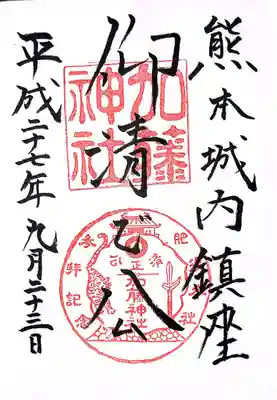 熊本城内鎮座
仰清正公
平成二十七年 九月二十三日
加藤
神社
加藤神社